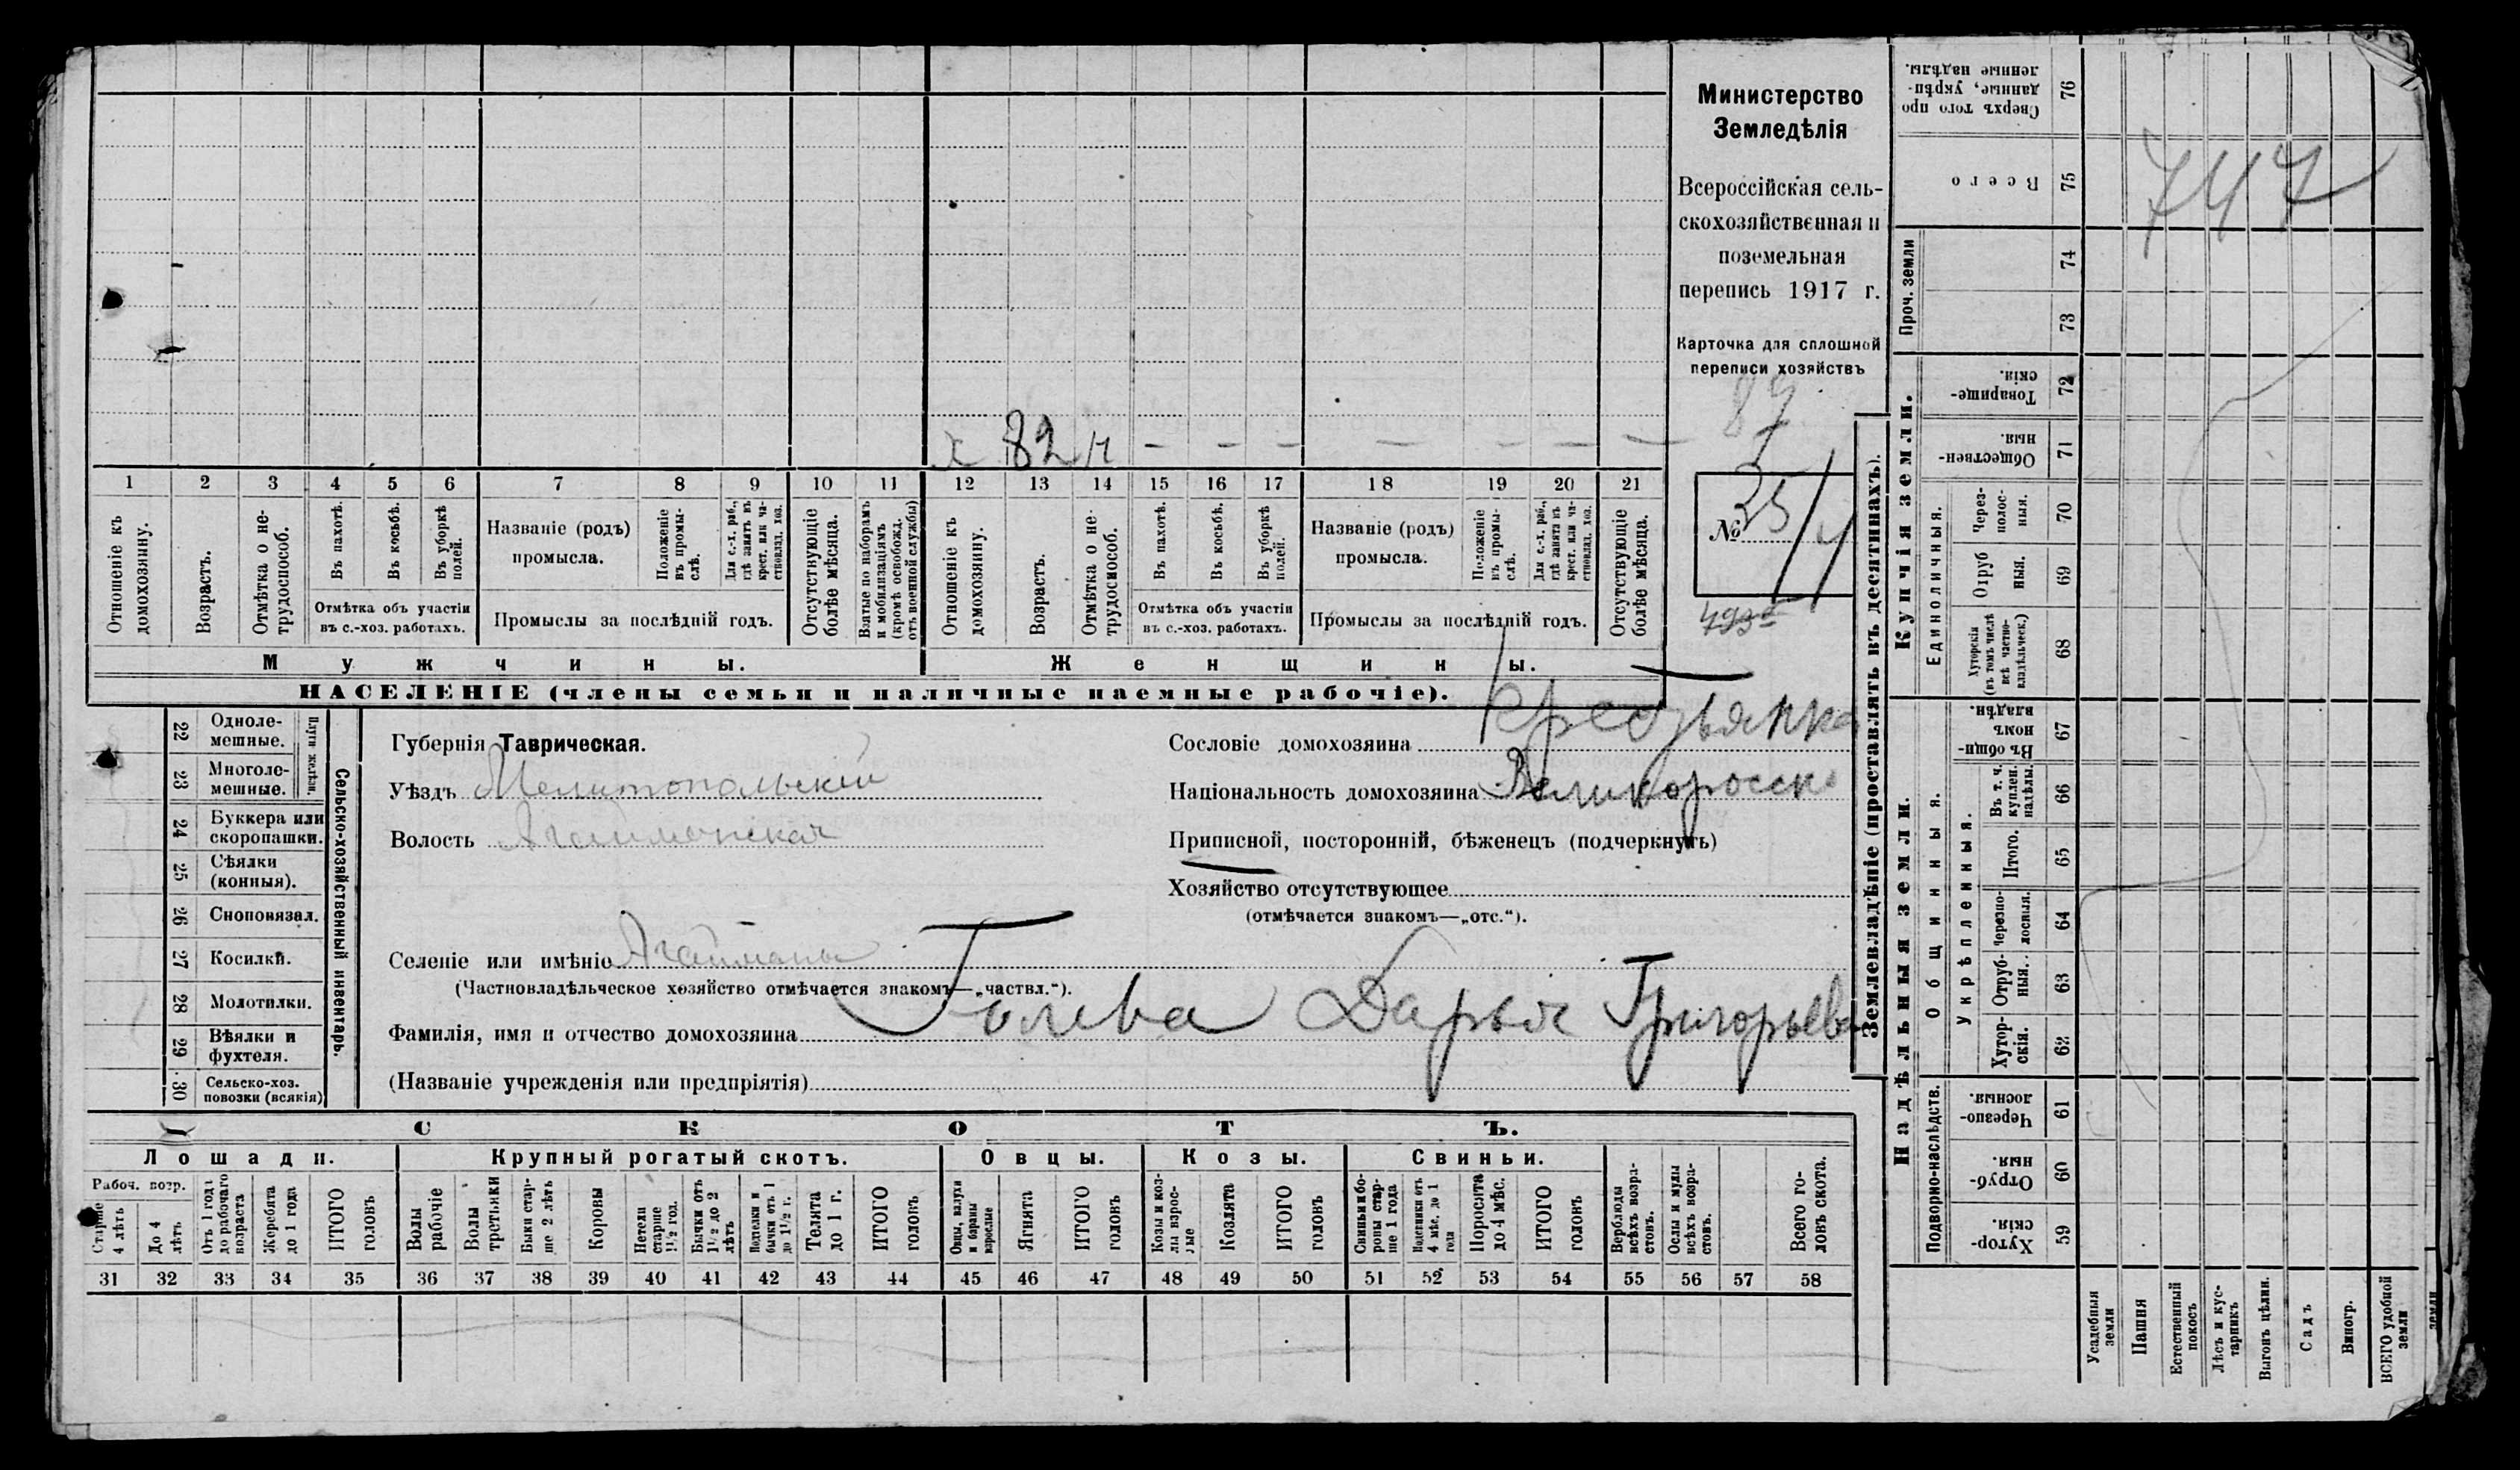 Министерство
Земледѣлія
Всероссійская сель-
скохозяйственная и
поземельная
перепись 1917 г.
Карточка для сплошной
переписи хозяйствъ
87
№ 35/4
х 82 н – – – – – – –
1 2 3 4 5 6 7 8 9 10 11 12 13 14 15 16 17 18 19 20 21
Отношеніе къ домохозяину.
Возрастъ.
Отмѣтка о не-трудоспособ.
Въ пахотѣ.
Въ косьбѣ.
Въ уборкѣ полей.
Отмѣтка объ участіи въ с.-хоз. работахъ.
Названіе (родъ) промысла.
Положеніе въ промы-слѣ.
Для с.-х. раб., гдѣ занятъ въ крест. или ча-стновлад. хоз.
Промыслы за послѣдній годъ.
Отсутствующіе болѣе мѣсяца.
Взятые по наборамъ и мобилизаціямъ (кромѣ освобожд. отъ военной службы)
Отношеніе къ домохозяину.
Возрастъ.
Отмѣтка о не-трудоспособ.
Въ пахотѣ.
Въ косьбѣ.
Въ уборкѣ полей.
Отмѣтка объ участіи въ с.-хоз. работахъ.
Названіе (родъ) промысла.
Положеніе въ промы-слѣ.
Для с.-х. раб., гдѣ занята въ крест. или ча-стновлад. хоз.
Промыслы за послѣдній годъ.
Отсутствующіе болѣе мѣсяца.
Мужчины.
Женщины.
НАСЕЛЕНІЕ (члены семьи и наличные наемные рабочіе).
Сельско-хозяйственный инвентарь.
Плуги желѣзн.
22 Одноле-мешные.
23 Многоле-мешные.
24 Буккера или скоропашки.
25 Сѣялки (конныя).
26 Сноповязал.
27 Косилки.
28 Молотилки.
29 Вѣялки и фухтеля.
30 Сельско-хоз. повозки (всякія)
Губернія Таврическая.
Уѣздъ Мелитопольскій
Волость Агайманская
Селеніе или имѣніе Агайманы
(Частновладѣльческое хозяйство отмѣчается знакомъ—„частвл.“).
Фамилія, имя и отчество домохозяина Голева Дарья Григорьева
(Названіе учрежденія или предпріятія)
Сословіе домохозяина Крестьянка
Національность домохозяина Великоросск
Приписной, посторонній, бѣженецъ (подчеркнуть)
Хозяйство отсутствующее
(отмѣчается знакомъ—„отс.“).
СКОТЪ.
Лошади.
Крупный рогатый скотъ.
Овцы.
Козы.
Свиньи.
Рабоч. возр.
Старше 4 лѣтъ
До 4 лѣтъ
Отъ 1 года до рабочаго возраста
Жеребята до 1 года
ИТОГО головъ
Волы рабочіе
Волы третьяки
Быки стар-ше 2 лѣтъ
Коровы
Нетели старше 1½ год.
Бычки отъ 1½ до 2 лѣтъ
Подтелки и бычки отъ 1 до 1½ г.
Телята до 1 г.
ИТОГО головъ
Овцы, валухи и бараны взрослые
Ягнята
ИТОГО головъ
Козы и коз-лы взрос-лые
Козлята
ИТОГО головъ
Свиньи и бо-ровы стар-ше 1 года
Подсвинки отъ 4 мѣс. до 1 года
Поросята до 4 мѣс.
ИТОГО головъ
Верблюды всѣхъ возра-стовъ.
Ослы и мулы всѣхъ возра-стовъ.
Всего го-ловъ скота.
31 32 33 34 35 36 37 38 39 40 41 42 43 44 45 46 47 48 49 50 51 52 53 54 55 56 57 58
Землевладѣніе (проставлять въ десятинахъ).
Надѣльныя земли.
Купчія земли.
Проч. земли
Подворно-наслѣдств.
Общинныя.
Укрѣпленныя.
Единоличныя.
Хутор-скія. 59
Отруб-ныя. 60
Черезпо-лосныя. 61
Хутор-скія. 62
Отруб-ныя. 63
Черезпо-лосныя. 64
Итого. 65
Въ т. ч. куплен. надѣлы. 66
Въ общи-номъ владѣн. 67
Хуторскія (въ томъ числѣ всѣ частно-владѣльческ.) 68
Отруб ныя. 69
Через-полос-ныя. 70
Обществен-ныя. 71
Товарище-скія. 72
73
74
Всего 75
Сверхъ того про данные, укрѣп-ленные надѣлы. 76
747
Усадебныя земли
Пашня
Естественный покосъ
Лѣсъ и кус-тарникъ
Выгонъ цѣлин.
Садъ
Виногр.
ВСЕГО удобной земли
земли